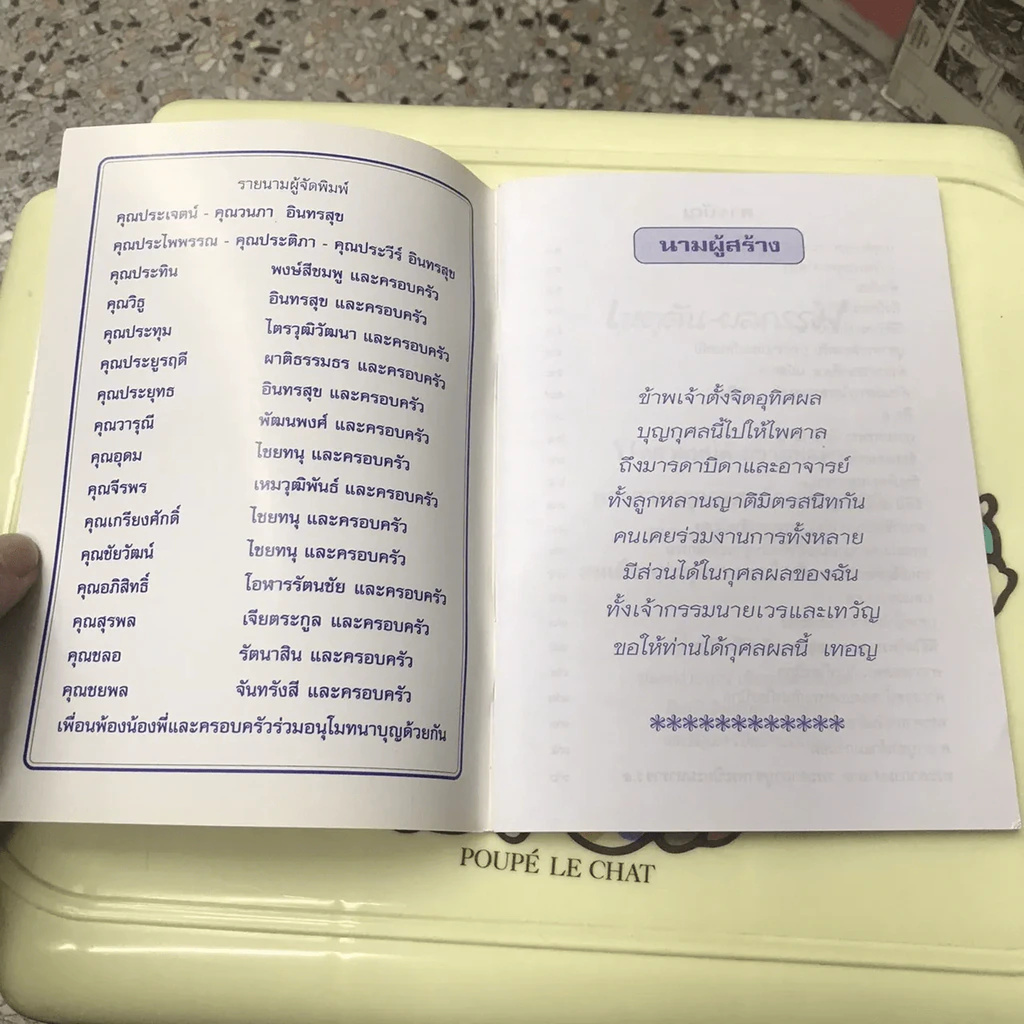 รายนามผู้จัดพิมพ์
คุณประเจตน์ - คุณวนภา อินทรสุข
คุณประไพพรรณ - คุณประติภา - คุณประวีร์ อินทรสุข
คุณประทิน พงษ์สีชมพู และครอบครัว
คุณวิธู อินทรสุข และครอบครัว
คุณประทุม ไตรวุฒิวัฒนา และครอบครัว
คุณประยูรฤดี ผาติธรรมธร และครอบครัว
คุณประยุทธ อินทรสุข และครอบครัว
คุณวารุณี พัฒนพงศ์ และครอบครัว
คุณอุดม ไชยทนุ และครอบครัว
คุณจีรพร เหมวุฒิพันธ์ และครอบครัว
คุณเกรียงศักดิ์ ไชยทนุ และครอบครัว
คุณชัยวัฒน์ ไชยทนุ และครอบครัว
คุณอภิสิทธิ์ โอหารรัตนชัย และครอบครัว
คุณสุรพล เจียตระกูล และครอบครัว
คุณชลอ รัตนาสิน และครอบครัว
คุณชยพล จันทรังสี และครอบครัว
เพื่อนพ้องน้องพี่และครอบครัวร่วมอนุโมทนาบุญด้วยกัน
นามผู้สร้าง
ข้าพเจ้าตั้งจิตอุทิศผล
บุญกุศลนี้ไปให้ไพศาล
ถึงมารดาบิดาและอาจารย์
ทั้งลูกหลานญาติมิตรสนิทกัน
คนเคยร่วมงานการทั้งหลาย
มีส่วนได้ในกุศลผลของฉัน
ทั้งเจ้ากรรมนายเวรและเทวัญ
ขอให้ท่านได้กุศลผลนี้ เทอญ
************
POUPÉ LE CHAT